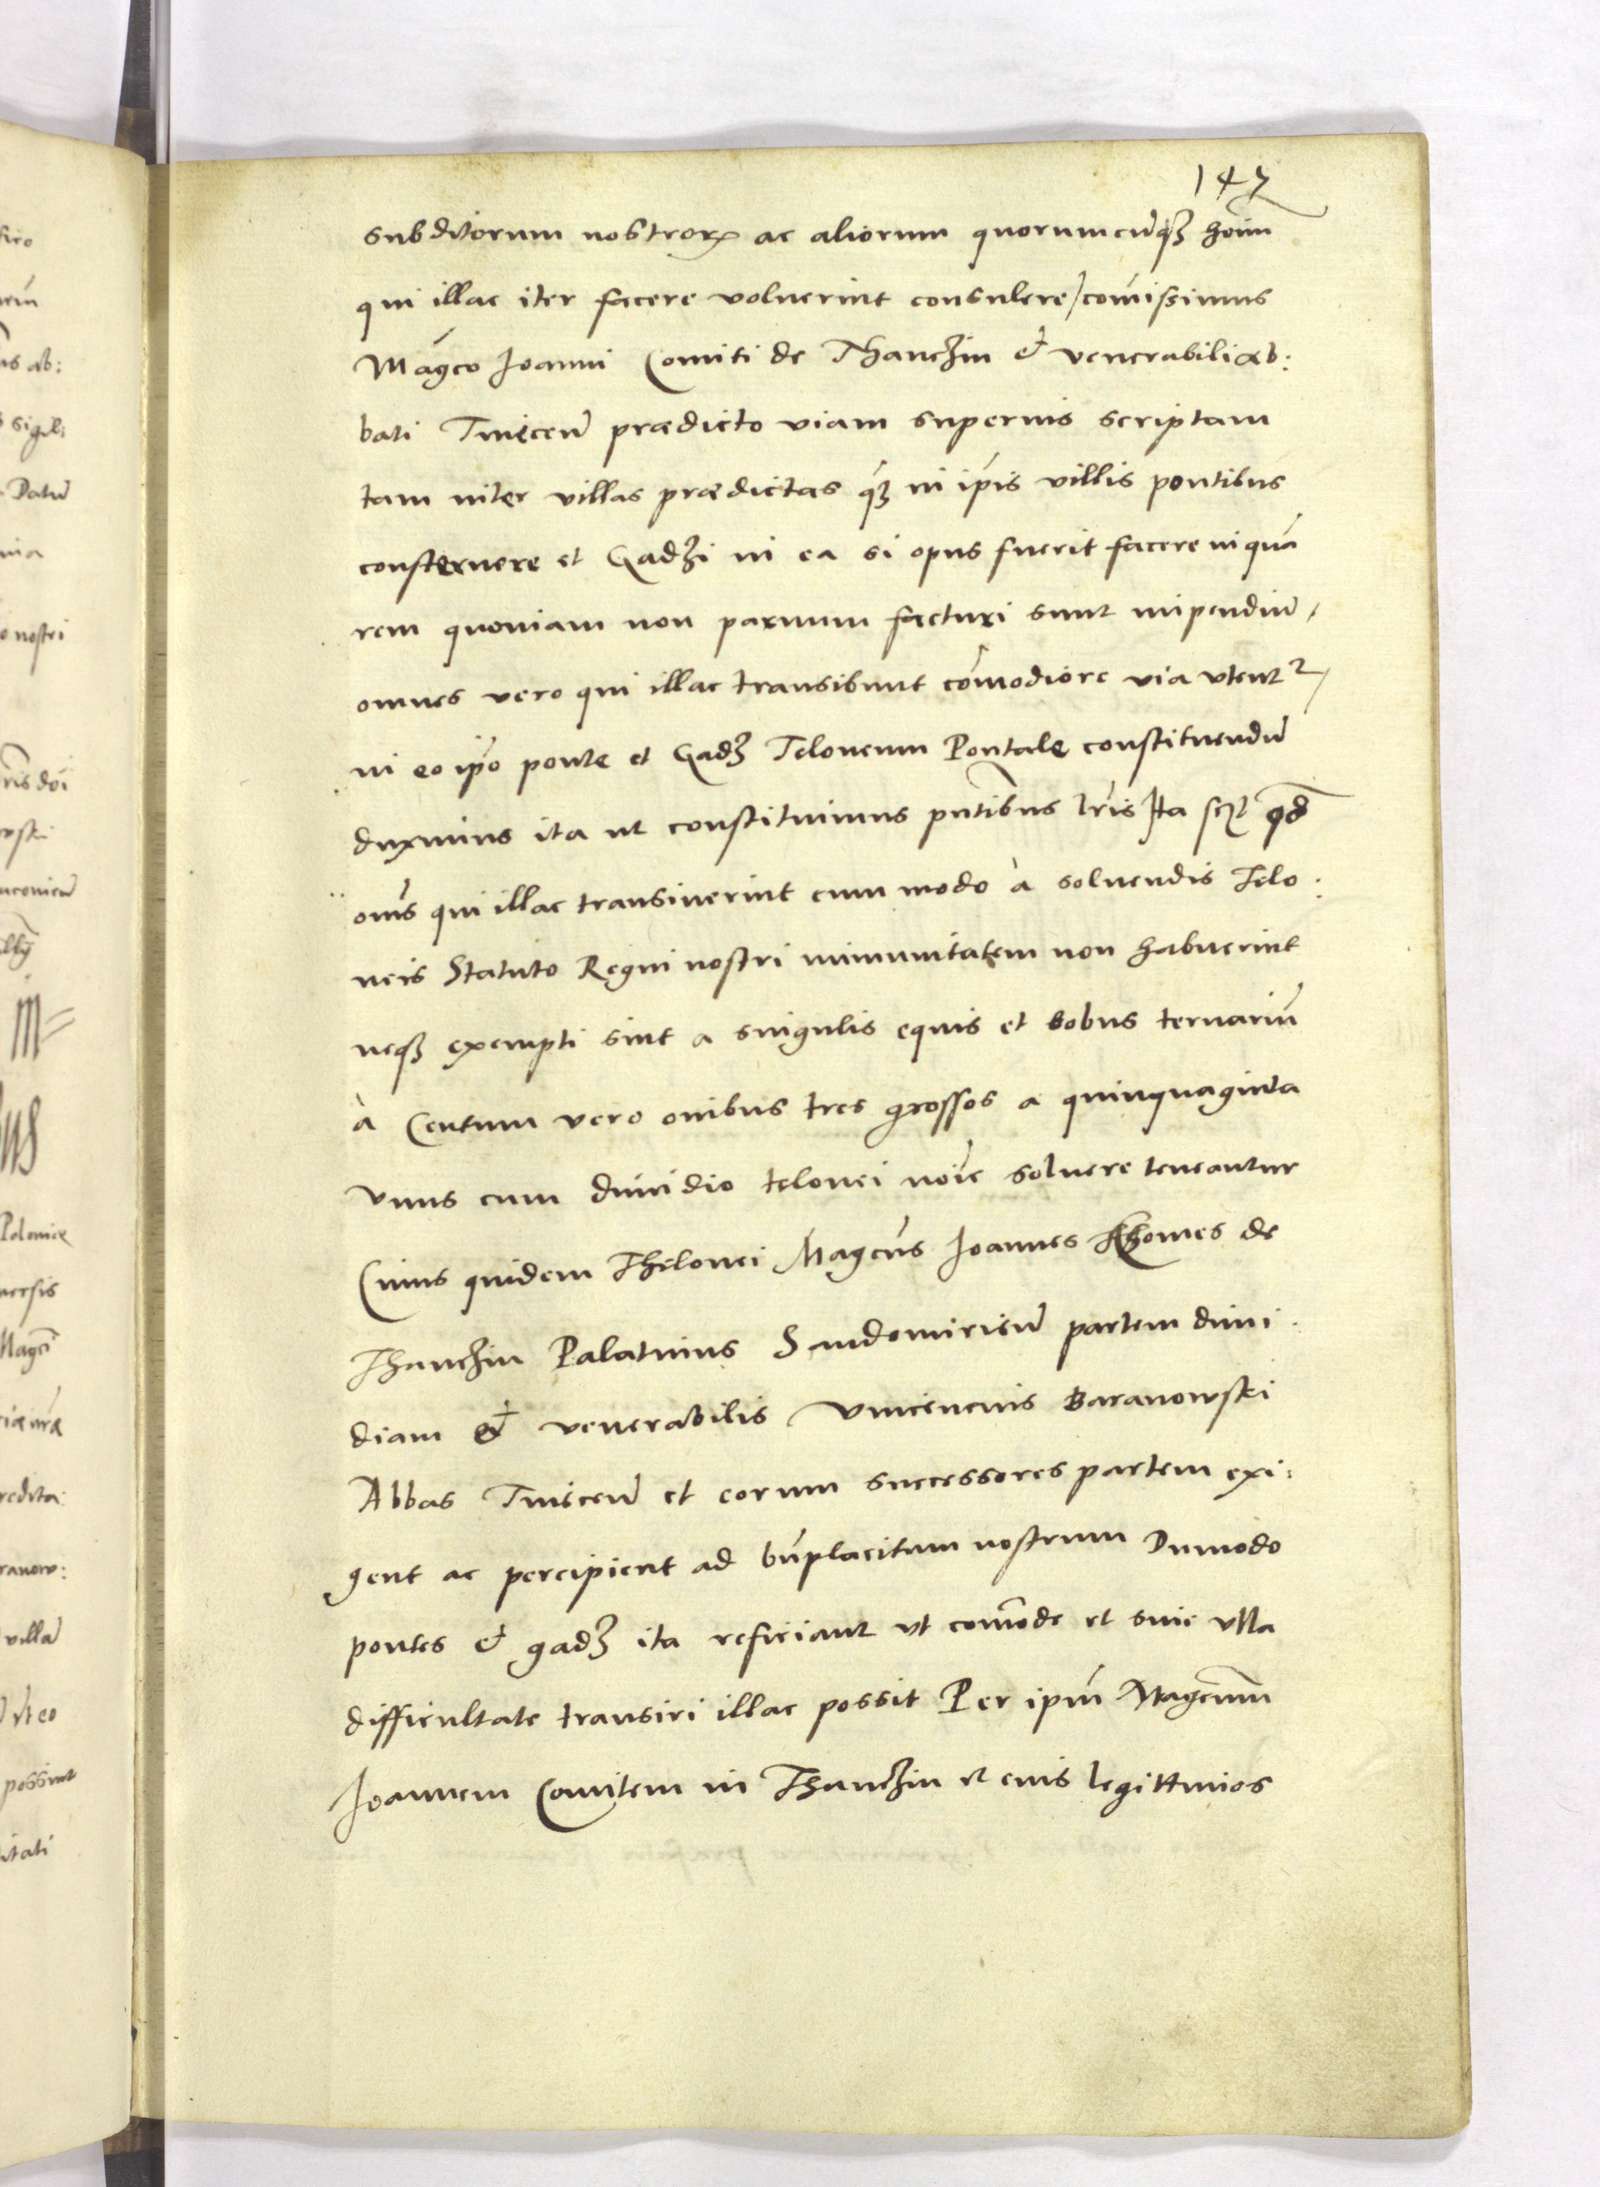 147
subditorum nostroꝝ ac aliorum quorumcūqꝫ hoīm
qui illac iter facere voluerint consulere / comīssimus
Magco Ioanni Comiti de Thanczin & venerabili ab:
bati Tinicen̄ prædicto viam superius scriptam
tam inter villas prædictas qꝫ in ip̄is villis pontibus
consternere et Gadzi in ea si opus fuerit facere in quā
rem quoniam non paruum facturi sunt inpendiū,
omnes vero qui illac transibunt com̄odiore via vtent2,
in eo ip̄o ponte et Gadꝫ Teloneum Pontale constituendū
duximus ita ut constituimus pn̄tibus lr̄is Ita scꝫ qd̄
om̄s qui illac transiuerint cum modo à soluendis Telo:
neis Statuto Regni nostri inmunitatem non habuerint
neqꝫ exempti sint a singulis equis et bobus ternariū
à Centum vero ouibus tres grossos a quinquaginta
vnus cum dimidio telonei noīe soluere teneantur
Cuius quidem Thelonei Magcūs Ioannes Chomes de
Thanczin Palatinus Sandomirien̄ partem dimi:
diam & venerabilis Vincencius Baranowski
Abbas Tinicen̄ et eorum successores partem exi:
gent ac percipient ad bn̄placitum nostrum Dumodo
pontes & gadꝫ ita reficiant vt com̄ode et sine vlla
difficultate transiri illac possit Per ip̄um Magcum̄
Ioannem Comitem in Thanczin et eius legittimos